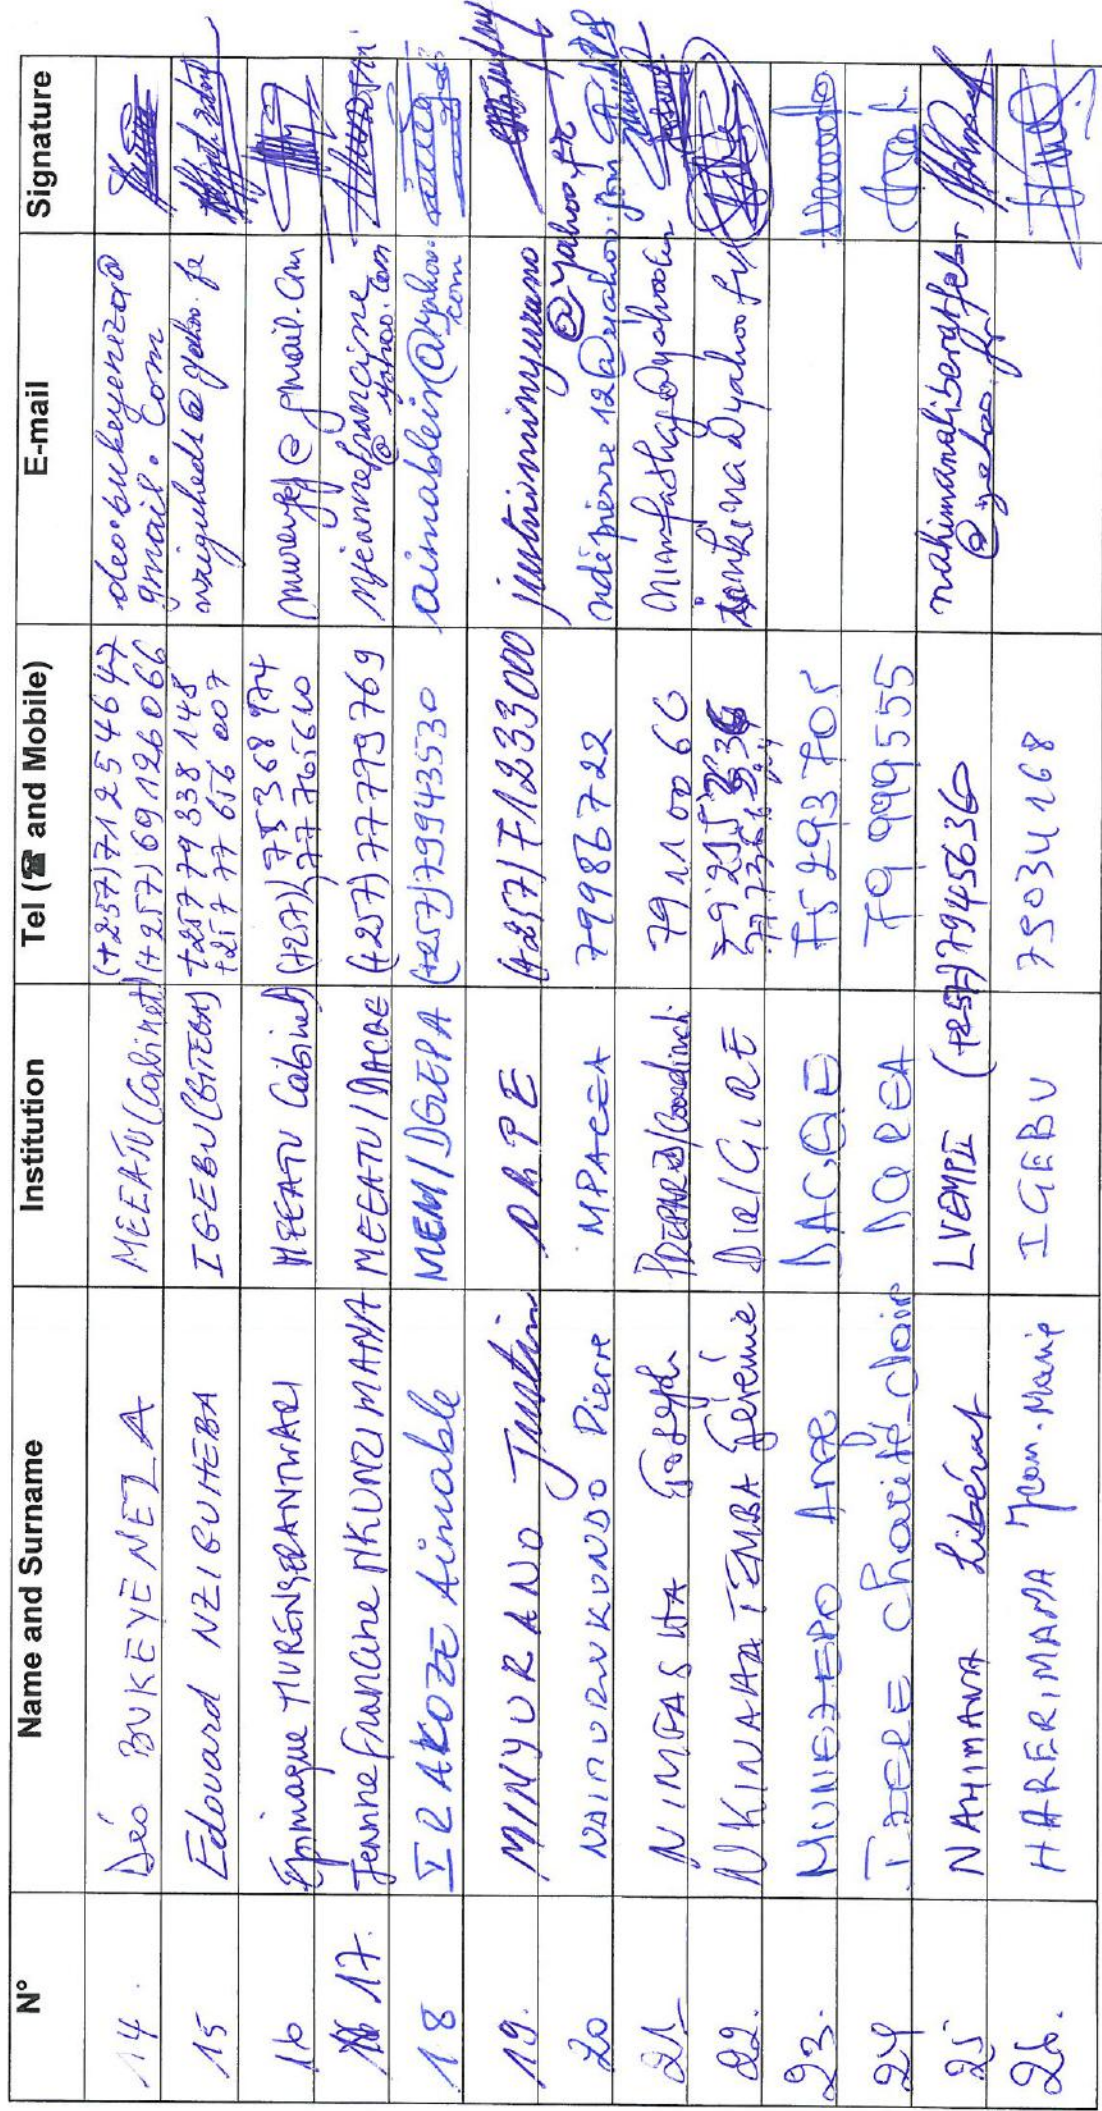 N° Name and Surname Institution Tel (☎ and Mobile) E-mail Signature
14. Déo BUKEYENEZA MEEATU (Cabinet) (+257) 71254647
(+257) 69126066 deo.bukeyeneza@
gmail.com
15 Edouard NZIGUHEBA IGEBU (GITEGA) +257 79 338 148
+257 77 656 007 nziguheda@yahoo.fr
16 Epimaque MURENGERANTWARI MEEATU Cabinet (+257) 75 368 974
77 765610 murengep@gmail.com
17. Jeanne Francine NKUNZIMANA MEEATU/DACQE (+257) 77779769 njeannefrancine
@yahoo.com
18 IRAKOZE Aimable MEM/DGEPA (+257) 79943530 aimableir@yahoo.
com
19. MINYURANO Justin DAPE (+257) 71233000 justinminyurano
@yahoo.fr
20 NDIMURUKUNDO Pierre MPACEA 79986722 ndepierre12@yahoo.fr
21 NIMFASHA Joseph PREPARED/Coordinat. 79110060
22. NKINAHATEMBA Jérémie DIR/GIRE
23. MUNEZERO Ange DACQE 75293705
24 IZERE Charité-Clair DQREA 79999555
25 NAHIMANA Libérat LVEMPII (+257) 7945636 nahimanaliberat
@yahoo.fr
26. HARERIMANA Jean-Marie IGEBU 75034168